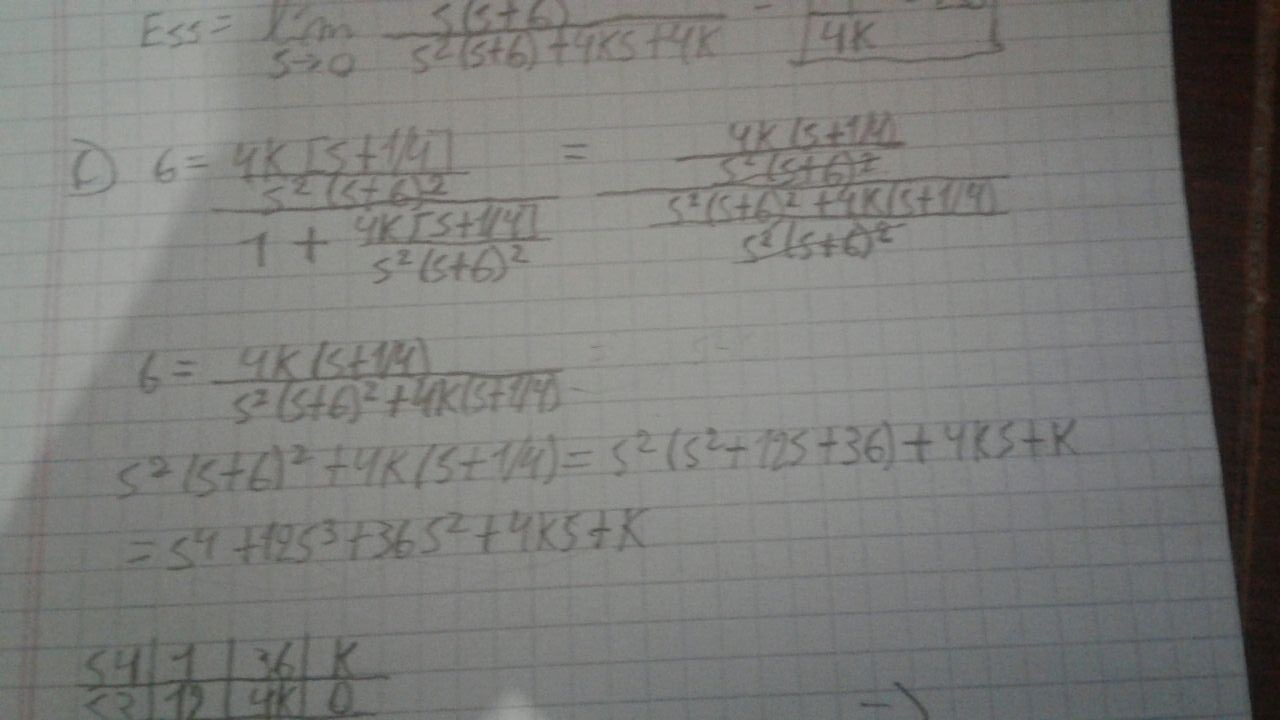 Ess = lim s→0 s(s+6) / s²(s+6)+4KS+4K = 1 / 4K
C) 6 = 4K[s+1/4] / s²(s+6)² / 1 + 4K[s+1/4] / s²(s+6)² = 4K(s+1/4) / s²(s+6)² / s²(s+6)²+4K(s+1/4) / s²(s+6)²
6 = 4K(s+1/4) / s²(s+6)²+4K(s+1/4)
s²(s+6)²+4K(s+1/4) = s²(s²+12s+36)+4KS+K
= s4+12s³+36s²+4KS+K
s4 | 1 | 36 | K
s3 | 12 | 4K | 0